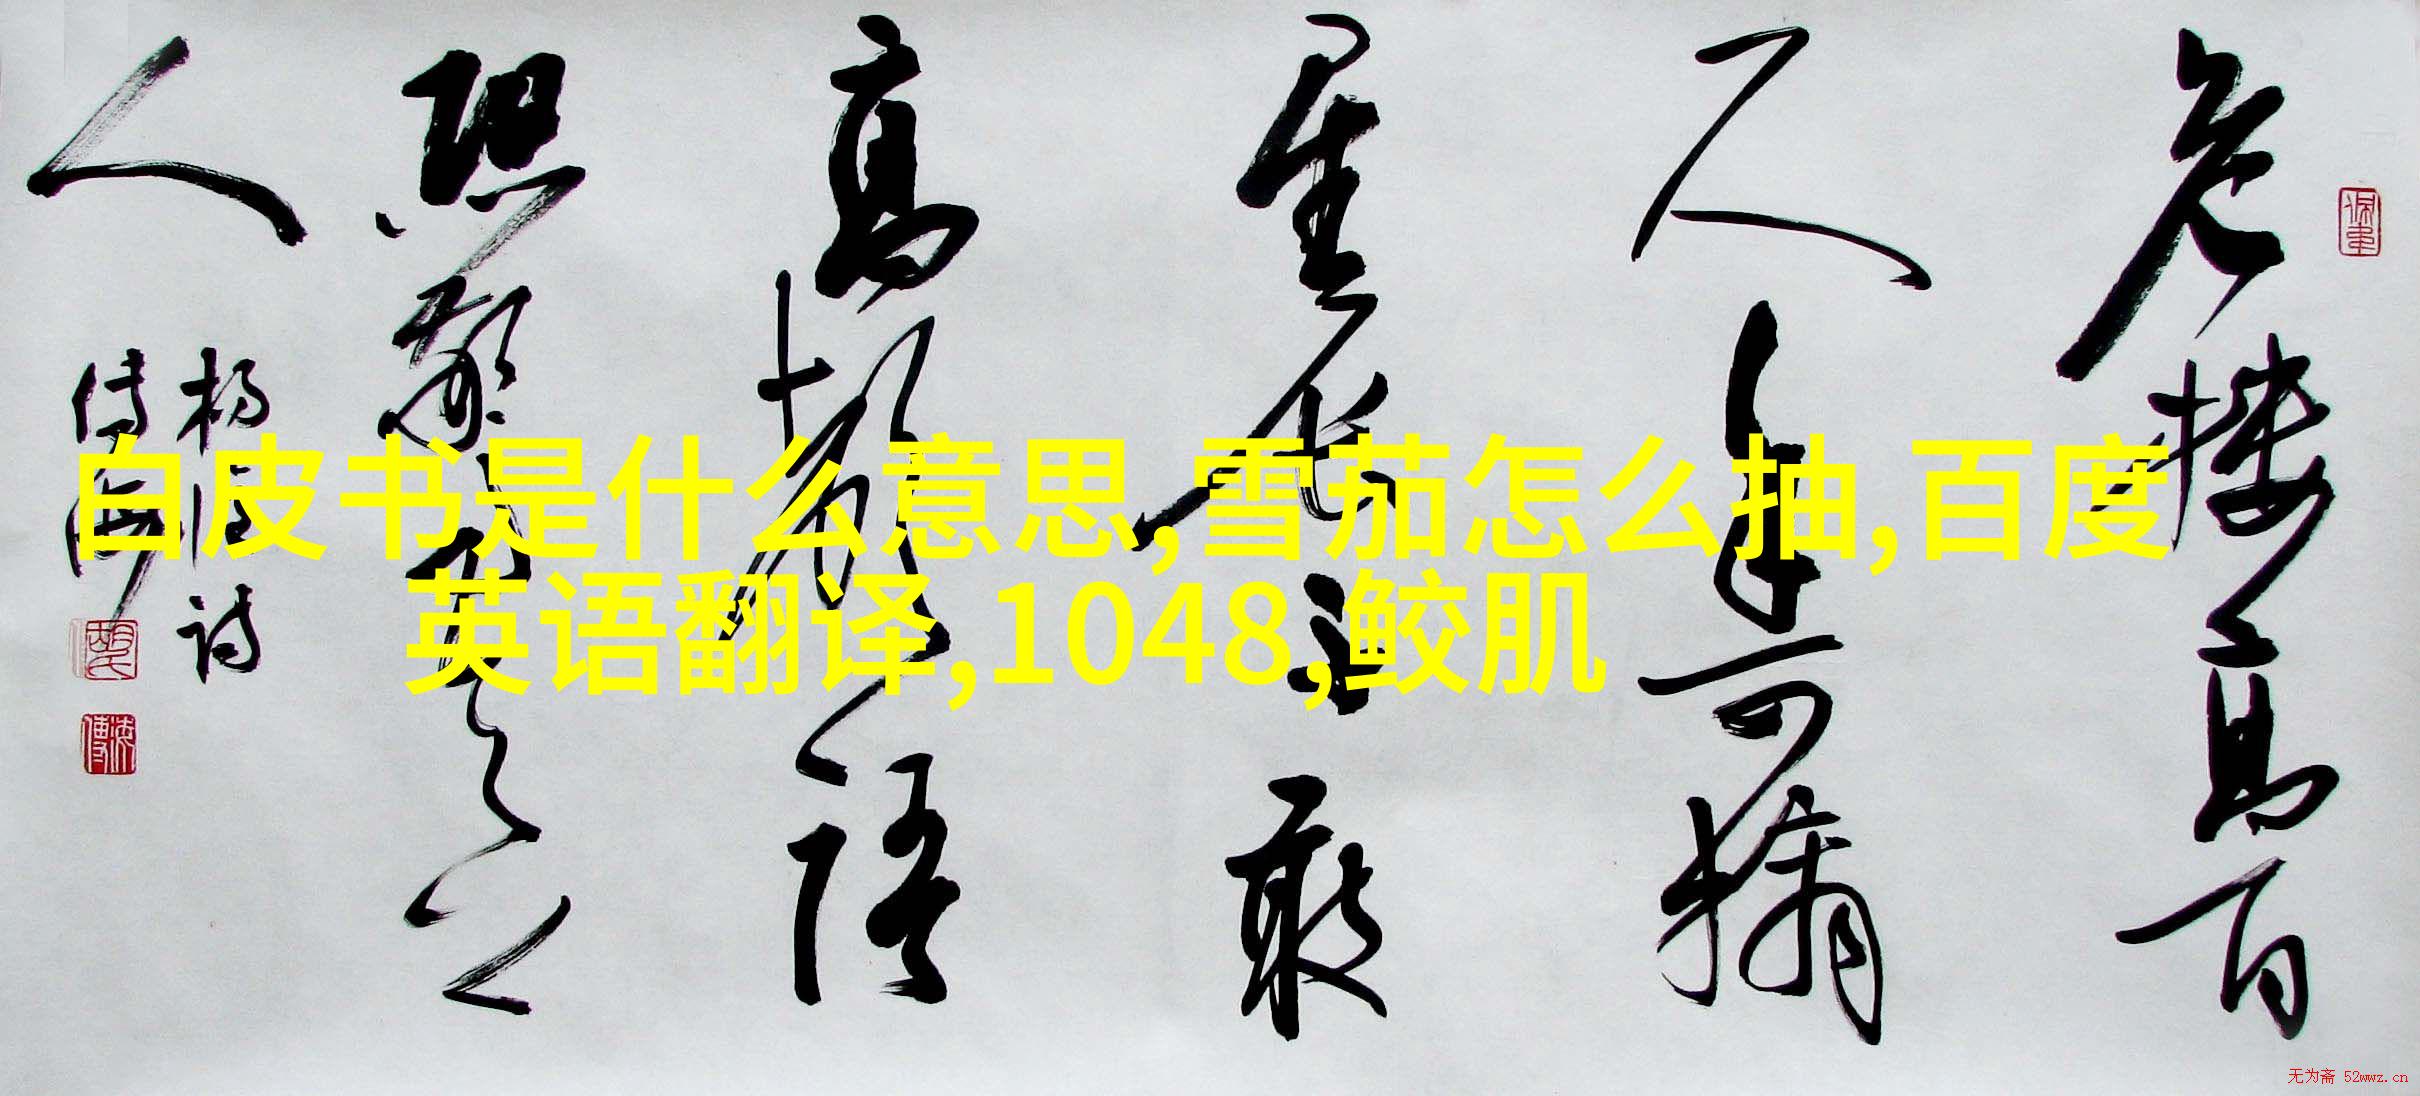 危楼高百
尺手可摘
星辰不敢
高聲语
恐驚天上
人
白皮书是什么意思,雪茄怎么抽,百度
英语翻译,1048,鲛肌
无为斋 52wwz.cn